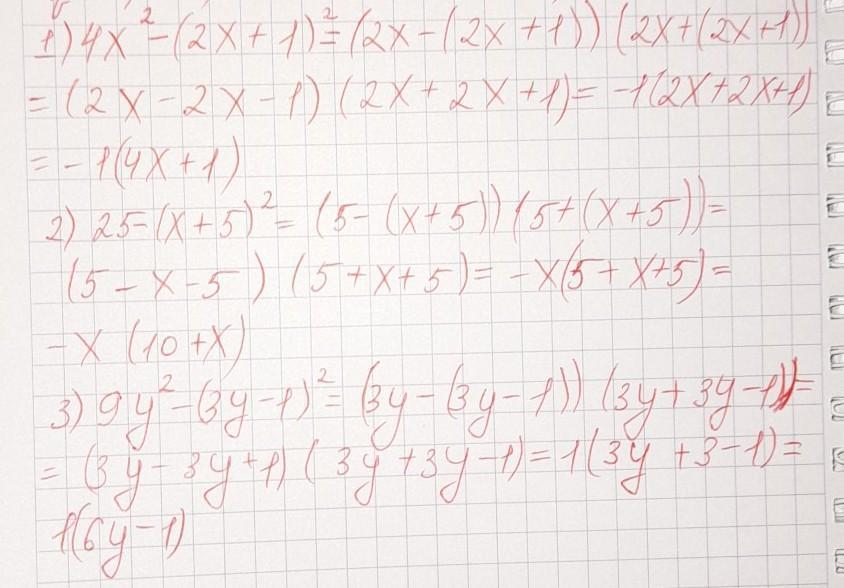 1) 4x² - (2x + 1)² = (2x - (2x + 1)) (2x + (2x + 1))
= (2x - 2x - 1) (2x + 2x + 1) = -1(2x + 2x + 1)
= -1(4x + 1)
2) 25 - (x + 5)² = (5 - (x + 5)) (5 + (x + 5)) =
(5 - x - 5) (5 + x + 5) = -x(5 + x + 5) =
-x (10 + x)
3) 9y² - (3y - 1)² = (3y - (3y - 1)) (3y + 3y - 1)) =
= (3y - 3y + 1) (3y + 3y - 1) = 1(3y + 3 - 1) =
1(6y - 1)